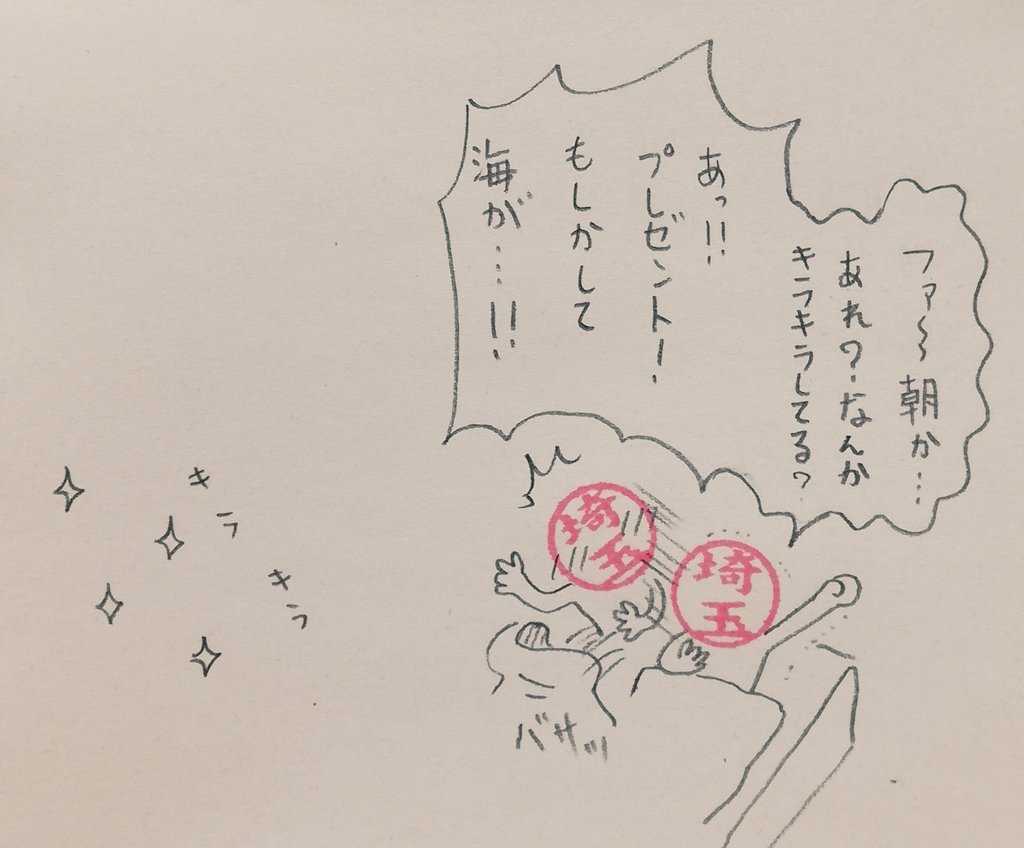 ファ〜朝か…
あれ？なんか
キラキラしてる？
あっ!!
プレゼント！
もしかして
海が…!!
埼玉
埼玉
キラ
キラ
バサッ